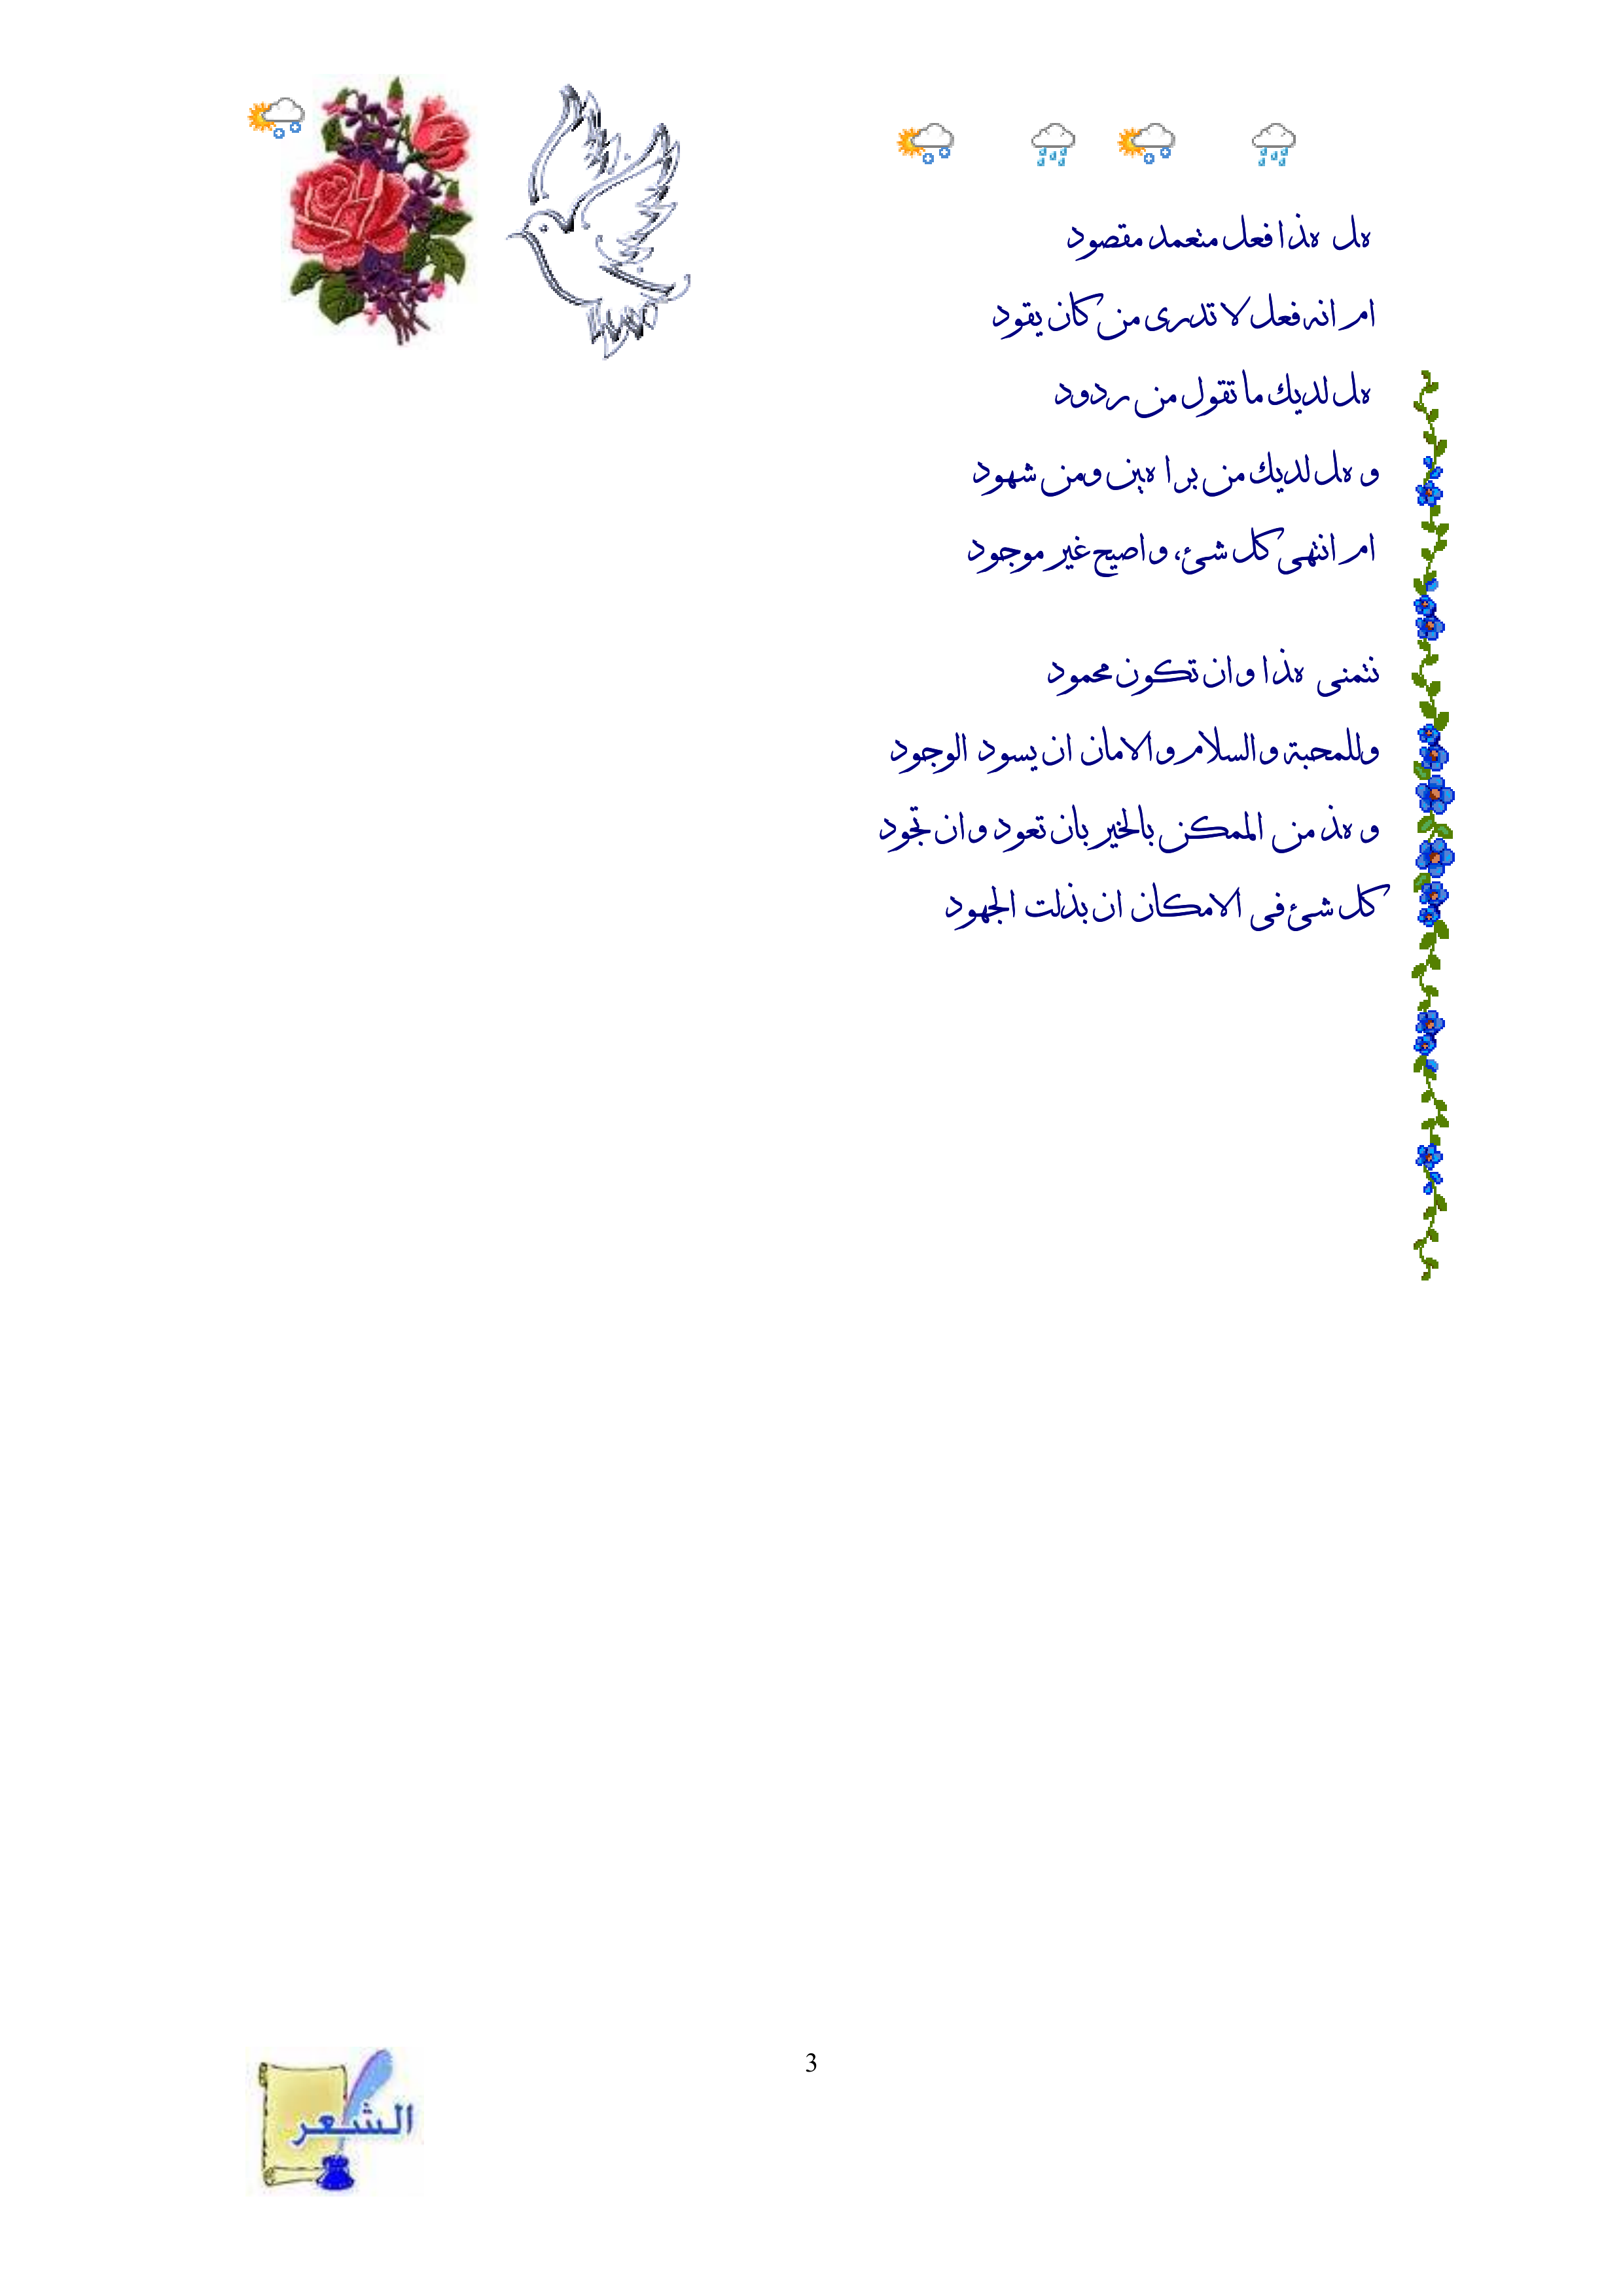 هل هذا فعل متعمد مقصود
ام انه فعل لا تدرى من كان يقود
هل لديك ما تقول من ردود
و هل لديك من براهين ومن شهود
ام انتهى كل شئ، واصبح غير موجود
نتمنى هذا وان تكون محمود
وللمحبة والسلام والامان ان يسود الوجود
و هذ من الممكن بالخير بان تعود وان تجود
كل شئ فى الامكان ان بذلت الجهود
3
الشعر